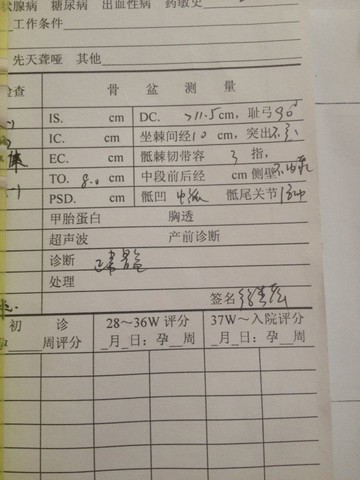 状腺病 糖尿病 出血性病 药敏史
工作条件
先天聋哑 其他
检查 骨盆测量
IS. cm DC. >11.5 cm，耻弓 90°
IC. cm 坐棘间经 10 cm，突出
EC. cm 骶棘韧带容 3 指，
TO. 8.0 cm 中段前后经 cm 侧壁
PSD. cm 骶凹 中弧 骶尾关节
甲胎蛋白 胸透
超声波 产前诊断
诊断
处理
签名
初诊 28～36W 评分 37W～入院评分
孕 周评分 月 日：孕 周 月 日：孕 周